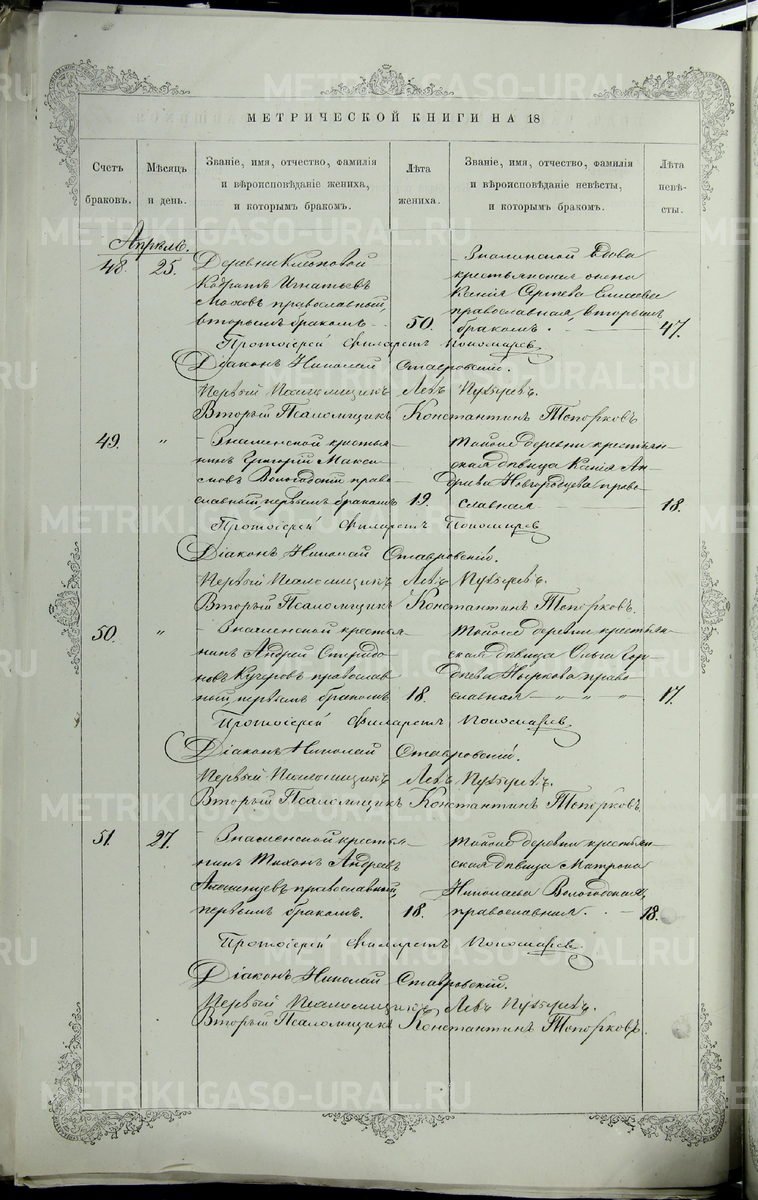 МЕТРИЧЕСКОЙ КНИГИ НА 18
Счетъ браковъ.
Мѣсяцъ и день.
Званіе, имя, отчество, фамилія и вѣроисповѣданіе жениха, и которымъ бракомъ.
Лѣта жениха.
Званіе, имя, отчество, фамилія и вѣроисповѣданіе невѣсты, и которымъ бракомъ.
Лѣта невѣсты.
Апрель.
48. 25.
Деревни
Игнатьевъ
православный,
вторымъ бракомъ 50.
вдова
крестьянская жена
Ксенія Сергѣева
православная, вторымъ
бракомъ. 47.
Протоіерей Филаретъ Пономаревъ
Діаконъ Николай Ставровскій.
Первый Псаломщикъ Левъ
Второй Псаломщикъ Константинъ Топорковъ
49. "
Знаменской крестья-
нинъ Григорій Макси-
мовъ Вологодскій право-
славный, первымъ бракомъ 19.
тойже деревни крестьян-
ская дѣвица Ксенія Ан-
дреева Новгородцева право-
славная 18.
Протоіерей Филаретъ Пономаревъ
Діаконъ Николай Ставровскій.
Первый Псаломщикъ Левъ
Второй Псаломщикъ Константинъ Топорковъ.
50. "
Знаменской крестья-
нинъ Андрей Спиридо-
новъ Кучеровъ православ-
ный, первымъ бракомъ 18.
тойже деревни крестьян-
ская дѣвица Ольга Гор-
дѣева право-
славная " " " 17.
Протоіерей Филаретъ Пономаревъ
Діаконъ Николай Ставровскій.
Первый Псаломщикъ Левъ
Второй Псаломщикъ Константинъ Топорковъ
51. 27.
Знаменской крестья-
нинъ Тихонъ Андреевъ
православный,
первымъ бракомъ. 18.
тойже деревни крестьян-
ская дѣвица Матрона
Николаева Вологодская,
православная. 18.
Протоіерей Филаретъ Пономаревъ.
Діаконъ Николай Ставровскій.
Первый Псаломщикъ Левъ
Второй Псаломщикъ Константинъ Топорковъ.
METRIKI.GASO-URAL.RU